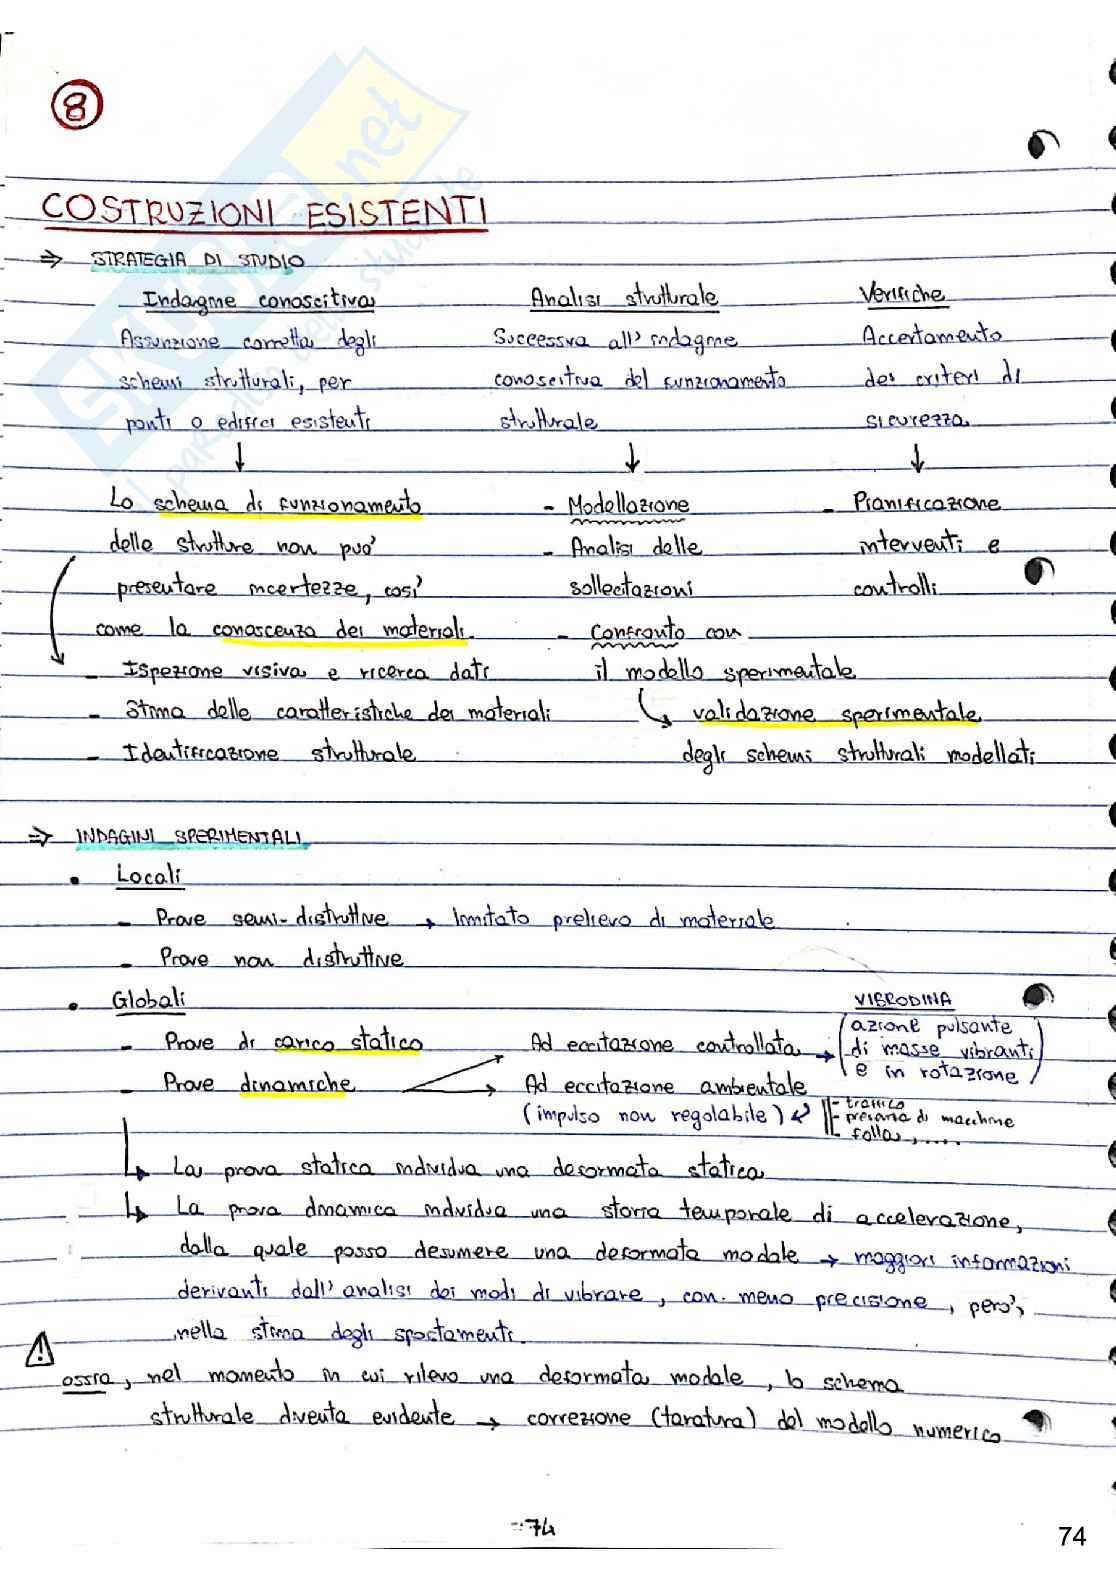 8
COSTRUZIONI ESISTENTI
⇒ STRATEGIA DI STUDIO
Indagine conoscitiva
Assunzione corretta degli
schemi strutturali, per
ponti o edifici esistenti
↓
Lo schema di funzionamento
delle strutture non può
presentare incertezze, così
come la conoscenza dei materiali.
- Ispezione visiva e ricerca dati
- Stima delle caratteristiche dei materiali
- Identificazione strutturale
Analisi strutturale
Successiva all'indagine
conoscitiva del funzionamento
strutturale
↓
- Modellazione
- Analisi delle
sollecitazioni
- Confronto con
il modello sperimentale
↳ validazione sperimentale
degli schemi strutturali modellati
Verifiche
Accertamento
dei criteri di
sicurezza
↓
- Pianificazione
interventi e
controlli
⇒ INDAGINI SPERIMENTALI
• Locali
- Prove semi-distruttive → limitato prelievo di materiale
- Prove non distruttive
• Globali
- Prove di carico statico
- Prove dinamiche
Ad eccitazione controllata →
VIBRODINA
(azione pulsante
di masse vibranti
e in rotazione)
Ad eccitazione ambientale
(impulso non regolabile)
- traffico
- presenza di macchine
- folla, ....
↳ La prova statica individua una deformata statica
↳ La prova dinamica individua una storia temporale di accelerazione,
dalla quale posso desumere una deformata modale → maggiori informazioni
derivanti dall'analisi dei modi di vibrare, con meno precisione, però,
nella stima degli spostamenti.
⚠ ossia, nel momento in cui rilevo una deformata modale, lo schema
strutturale diventa evidente → correzione (taratura) del modello numerico
74
74
SKUOLA.net
il paradiso dello studente